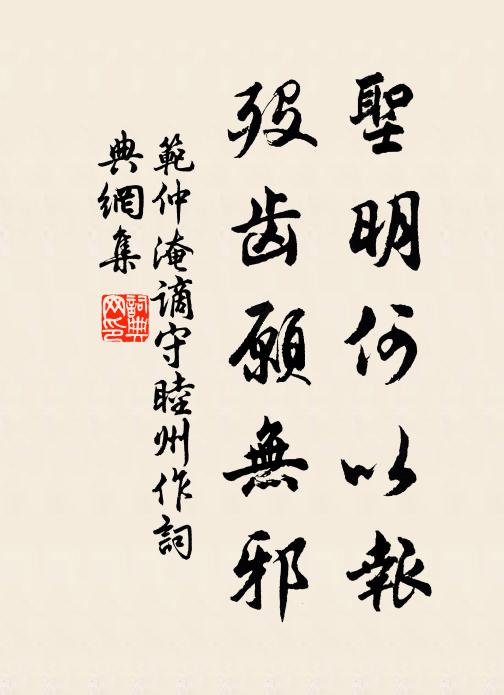 聖明何以報
歿齒願無邪
範仲淹謫守睦州作詞
典網集
詞典網印